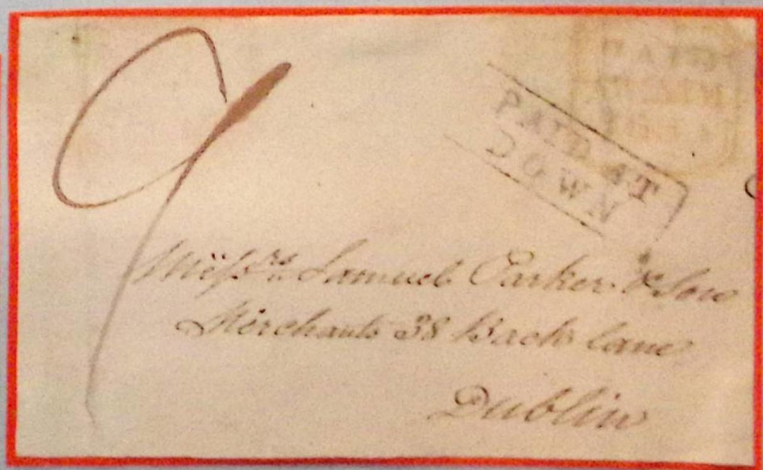 9
PAID AT
DOWN
PAID
Messrs Samuel Parker & Sons
Merchants 38 Back lane
Dublin